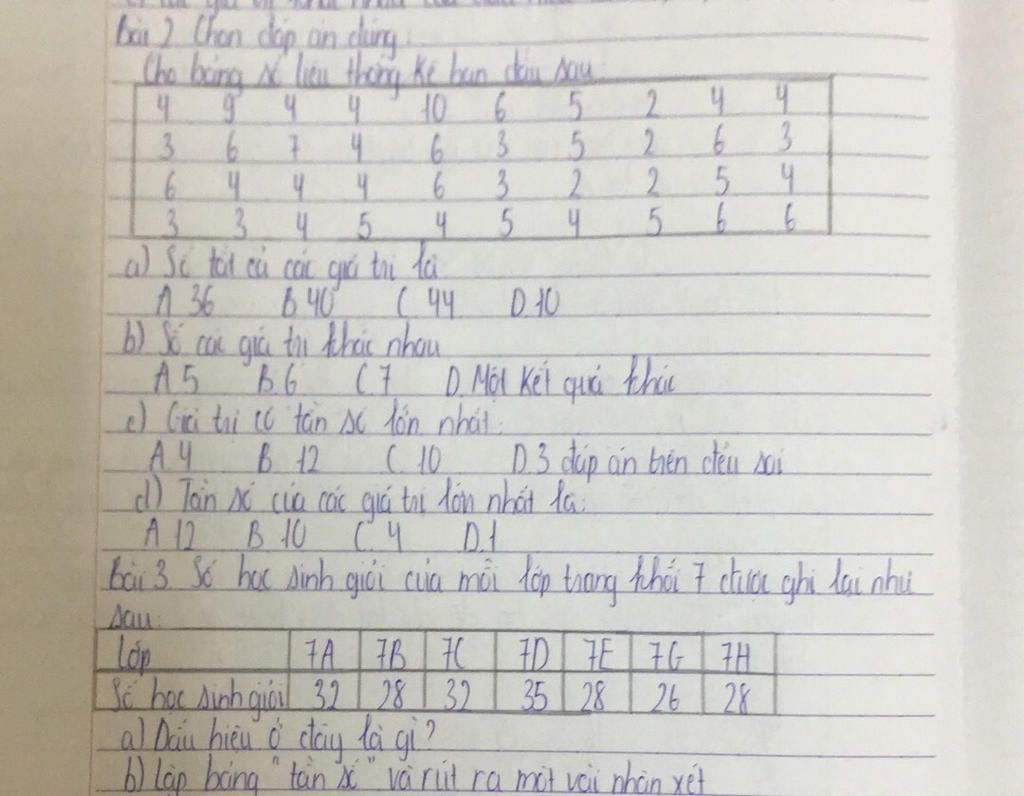 Bài 2 Chọn đáp án đúng:
Cho bảng số liệu thống kê ban đầu sau:
4 9 4 4 10 6 5 2 4 4
3 6 7 4 6 3 5 2 6 3
6 4 4 4 6 3 2 2 5 4
3 3 4 5 4 5 4 5 6 6
a) Số tất cả các giá trị là
A 36 B 40 C 44 D. 10
b) Số các giá trị khác nhau
A 5 B. 6 C 7 D. Một kết quả khác
c) Giá trị có tần số lớn nhất:
A 4 B 12 C 10 D. 3 đáp án trên đều sai
d) Tần số của các giá trị lớn nhất là:
A 12 B. 10 C. 4 D. 1
Bài 3. Số học sinh giỏi của mỗi lớp trong khối 7 được ghi lại như
sau:
Lớp 7A 7B 7C 7D 7E 7G 7H
Số học sinh giỏi 32 28 32 35 28 26 28
a) Dấu hiệu ở đây là gì?
b) Lập bảng "tần số" và rút ra một vài nhận xét